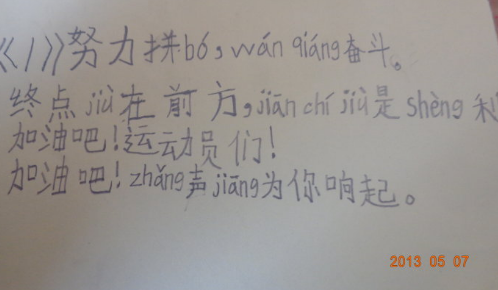 《1》努力拼bó，wán qiáng奋斗。
终点jiù在前方，jiān chí jiù是shèng利
加油吧！运动员们！
加油吧！zhǎng声jiāng为你响起。
2013 05 07